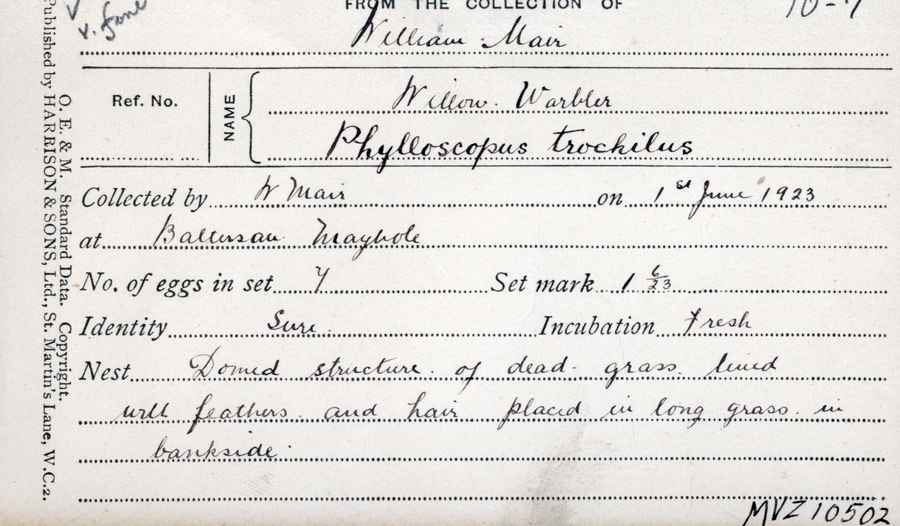 FROM THE COLLECTION OF
10-7
v. fine
William Mair
Ref. No.
NAME
Willow Warbler
Phylloscopus trochilus
Collected by W Mair on 1st June 1923
at Baltersan Maybole
No. of eggs in set 7 Set mark 1 6/23
Identity Sure. Incubation Fresh
Nest Domed structure of dead grass lined
with feathers and hair placed in long grass in
bankside.
MVZ 10502
O. E. & M. Standard Data. Copyright.
Published by HARRISON & SONS, Ltd., St. Martin's Lane, W.C.2.